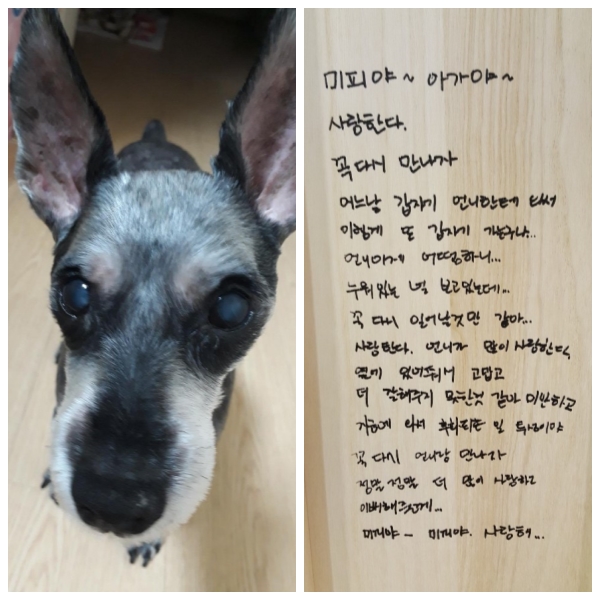 미피야~ 아가야~
사랑한다.
꼭 다시 만나자
어느날 갑자기 언니한테 와서
이렇게 또 갑자기 가는구나...
언니한테 어떻하니...
누워있는 널 보고있는데...
꼭 다시 일어날것만 같아...
사랑한다. 언니가 많이 사랑한다.
곁에 있어줘서 고맙고
더 잘해주지 못한것 같아 미안하고
가는게 와서 후회되는 일 투성이야
꼭 다시 언니랑 만나자
정말 정말 더 많이 사랑하고
이뻐해주께...
미피야~ 미피야. 사랑해...